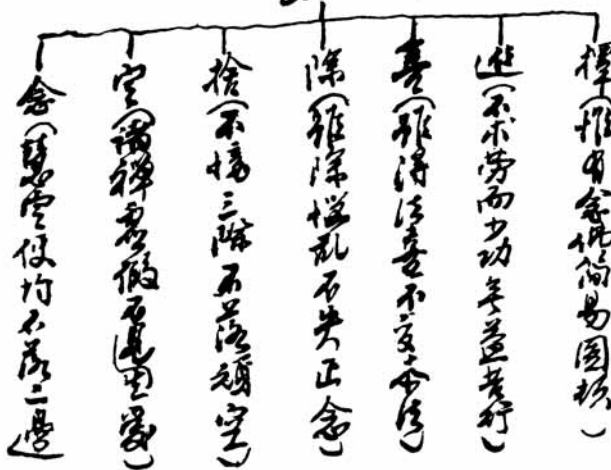 擇(惟有念佛簡易圓頓)
進(不求勞而少功無益苦行)
喜(雖得法喜不法)
除(雖除惱亂不失正念)
捨(不憶三際不落頑空)
定(諸禪虛假不愛)
念(慧定使均不落二邊